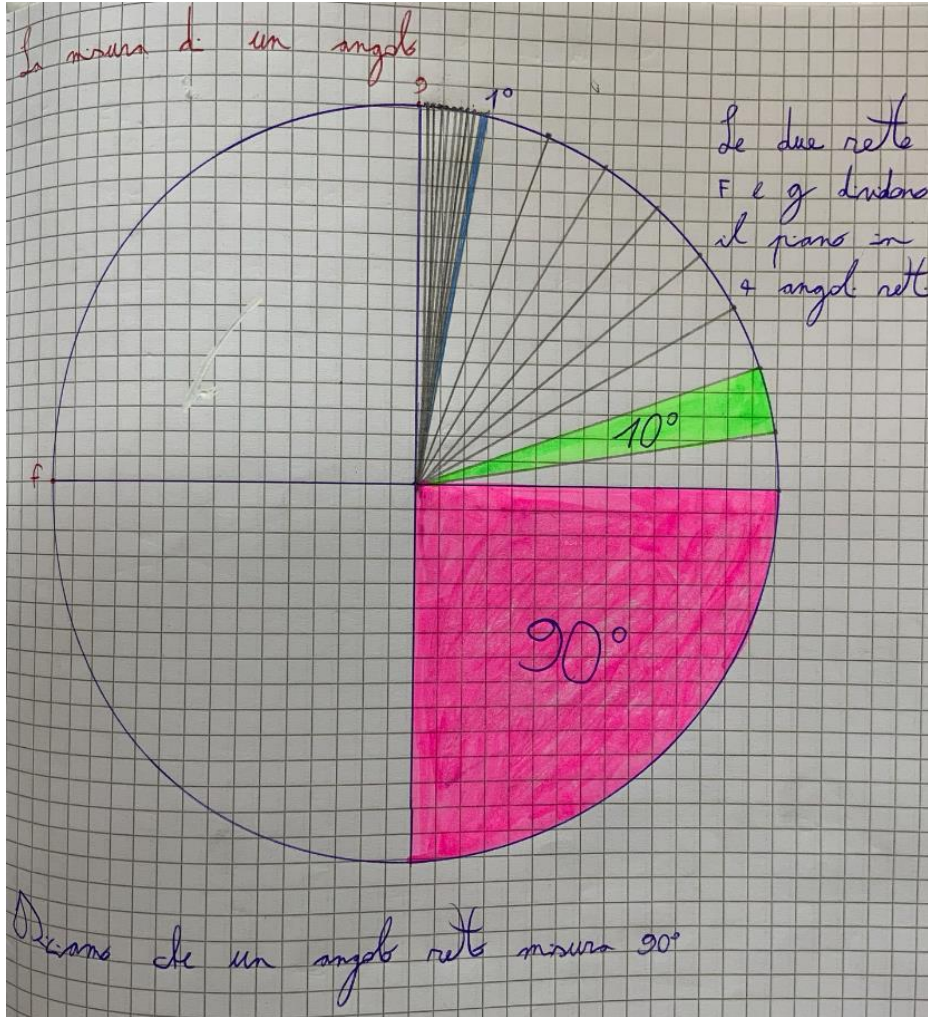 La misura di un angolo
g
1°
Le due rette
F e g dividono
il piano in
4 angoli retti
10°
f
90°
Diciamo che un angolo retto misura 90°